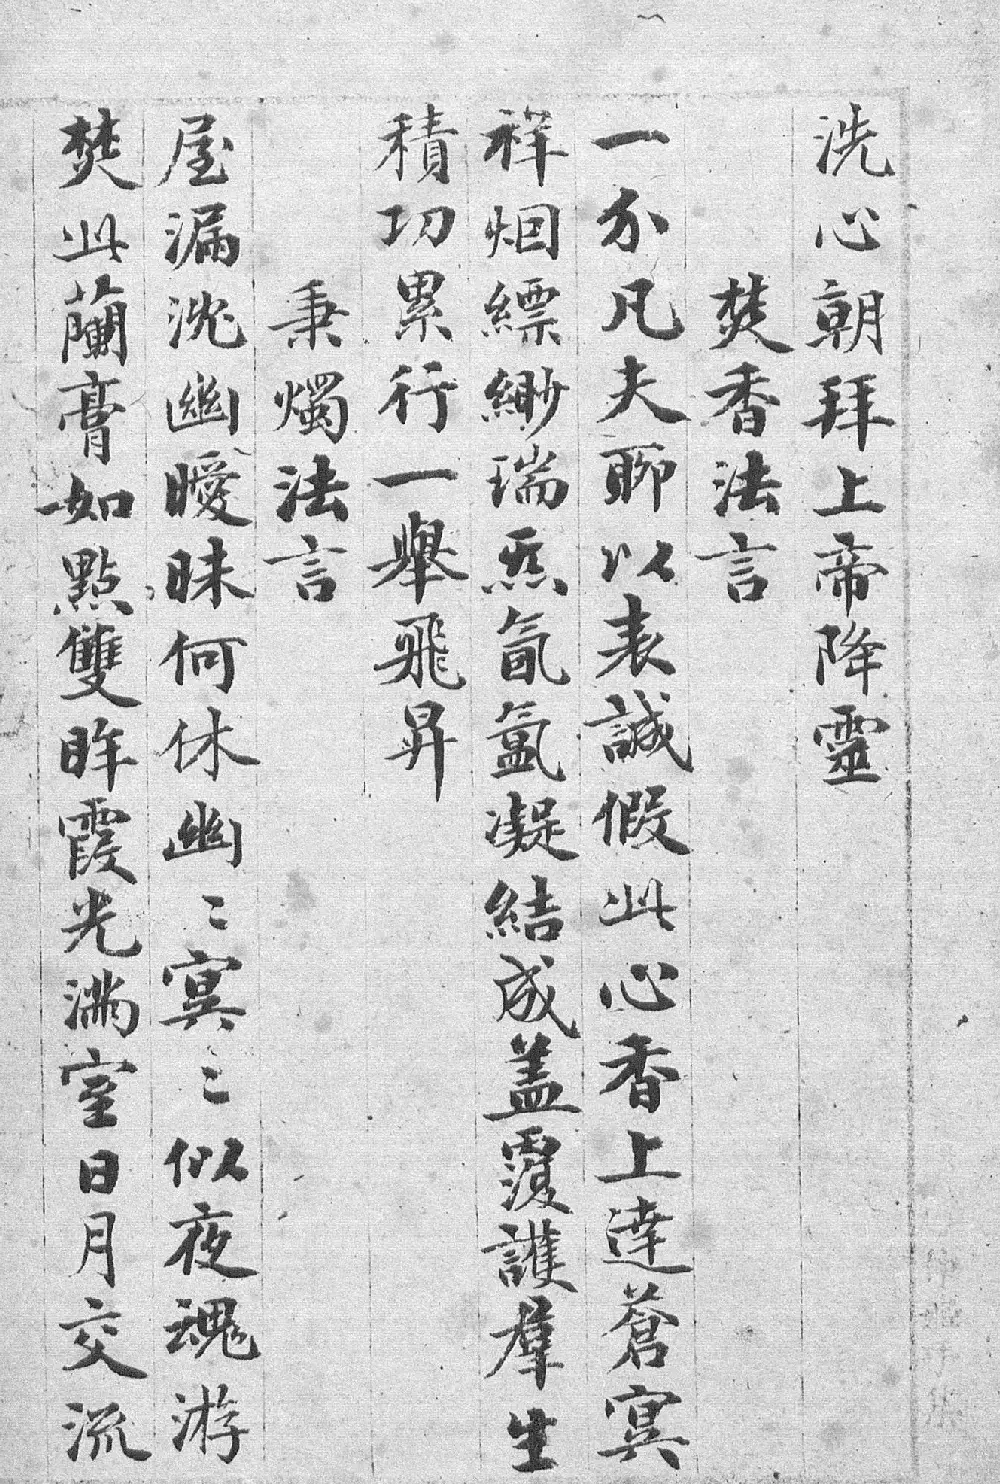 洗心朝拜上帝降靈
焚香法言
一介凡夫聊以表誠假此心香上達蒼冥
祥烟縹緲瑞炁氤氳凝結成盖覆護羣生
積功累行一舉飛昇
秉燭法言
屋漏沈幽曖昧何休幽〻冥〻似夜魂游
焚此蘭膏如點雙眸霞光滿室日月交流